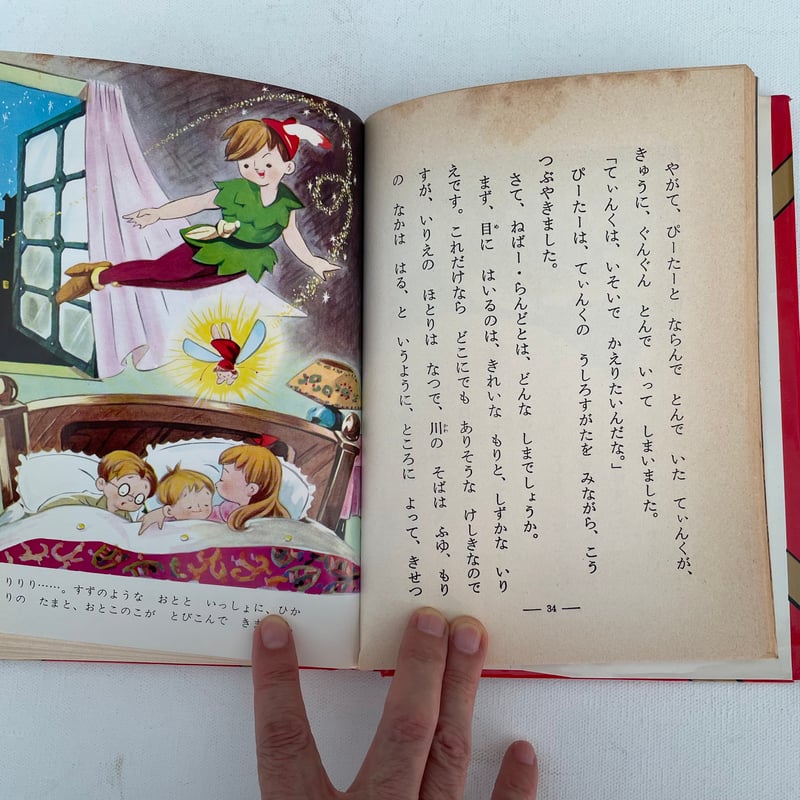 やがて、ぴーたーと ならんで とんで いた てぃんくが、
きゅうに、ぐんぐん とんで いって しまいました。
「てぃんくは、いそいで かえりたいんだな。」
ぴーたーは、てぃんくの うしろすがたを みながら、こう
つぶやきました。
さて、ねばー・らんどとは、どんな しまでしょうか。
まず、目に はいるのは、きれいな もりと、しずかな いり
えです。これだけなら どこにでも ありそうな けしきなので
すが、いりえの ほとりは なつで、川の そばは ふゆ、もり
の なかは はる、と いうように、ところに よって、きせつ
— 34 —
りりり……。すずのような おとと いっしょに、ひか
りの たまと、おとこのこが とびこんで き